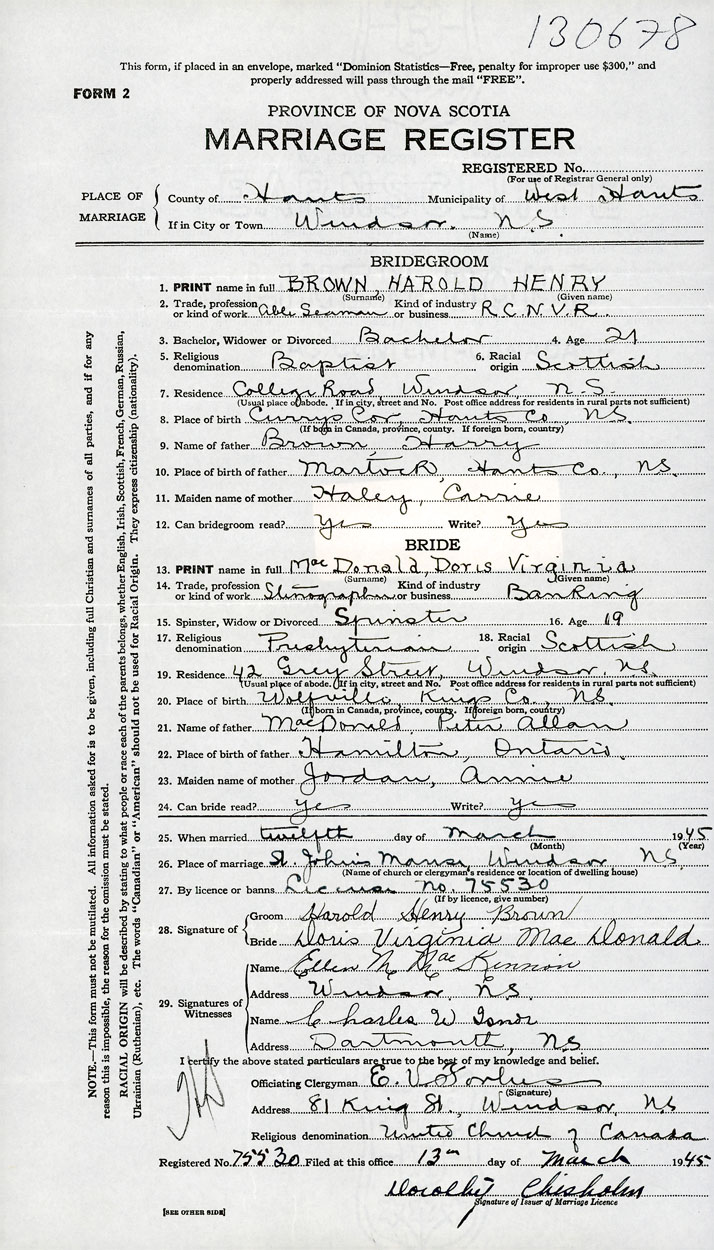 130678
This form, if placed in an envelope, marked "Dominion Statistics—Free, penalty for improper use $300," and
properly addressed will pass through the mail "FREE".
FORM 2
PROVINCE OF NOVA SCOTIA
MARRIAGE REGISTER
REGISTERED No.
(For use of Registrar General only)
PLACE OF MARRIAGE
County of Hants Municipality of West Hants
If in City or Town Windsor. N.S.
(Name)
BRIDEGROOM
1. PRINT name in full BROWN, HAROLD HENRY
(Surname) (Given name)
2. Trade, profession or kind of work Able Seaman Kind of industry or business R.C.N.V.R.
3. Bachelor, Widower or Divorced Bachelor 4. Age 21
5. Religious denomination Baptist 6. Racial origin Scottish
7. Residence College Road, Windsor, N.S.
(Usual place of abode. If in city, street and No. Post office address for residents in rural parts not sufficient)
8. Place of birth Currys Cor, Hants Co., NS.
(If born in Canada, province, county. If foreign born, country)
9. Name of father Brown, Harry
10. Place of birth of father Martock, Hants Co., NS.
11. Maiden name of mother Haley, Carrie
12. Can bridegroom read? Yes Write? Yes
BRIDE
13. PRINT name in full MacDonald, Doris Virginia
(Surname) (Given name)
14. Trade, profession or kind of work Stenographer Kind of industry or business Banking
15. Spinster, Widow or Divorced Spinster 16. Age 19
17. Religious denomination Presbyterian 18. Racial origin Scottish
19. Residence 42 Grey Street, Windsor, NS.
(Usual place of abode. If in city, street and No. Post office address for residents in rural parts not sufficient)
20. Place of birth Wolfville Kings Co. NS.
(If born in Canada, province, county. If foreign born, country)
21. Name of father MacDonald, Peter Allan
22. Place of birth of father Hamilton, Ontario.
23. Maiden name of mother Jordan, Annie
24. Can bride read? yes Write? yes
25. When married twelfth day of March 1945
(Month) (Year)
26. Place of marriage St. John's Manse, Windsor NS.
(Name of church or clergyman's residence or location of dwelling house)
27. By licence or banns License No. 75530
(If by licence, give number)
28. Signature of
Groom Harold Henry Brown
Bride Doris Virginia MacDonald
29. Signatures of Witnesses
Name Ellen M. MacKinnon
Address Windsor, NS.
Name Charles W
Address Dartmouth, NS
I certify the above stated particulars are true to the best of my knowledge and belief.
Officiating Clergyman E. V. Forbes
(Signature)
Address 81 King St., Windsor, NS
Religious denomination United Church of Canada
Registered No. 75530 Filed at this office 13th day of March 1945
Dorothy Chisholm
Signature of Issuer of Marriage Licence
[SEE OTHER SIDE]
NOTE.—This form must not be mutilated. All information asked for is to be given, including full Christian and surnames of all parties, and if for any
reason this is impossible, the reason for the omission must be stated.
RACIAL ORIGIN will be described by stating to what people or race each of the parents belongs, whether English, Irish, Scottish, French, German, Russian,
Ukrainian (Ruthenian), etc. The words "Canadian" or "American" should not be used for Racial Origin. They express citizenship (nationality).